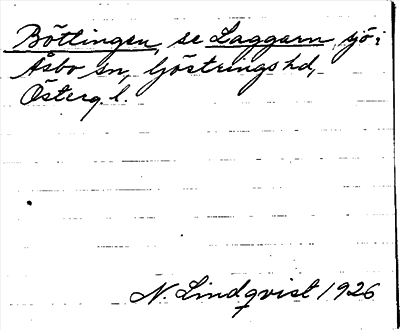 Böttingen, se Laggarn, sjö i
Åsbo sn, Göstrings hd,
Österg. l.
N. Lindqvist 1926